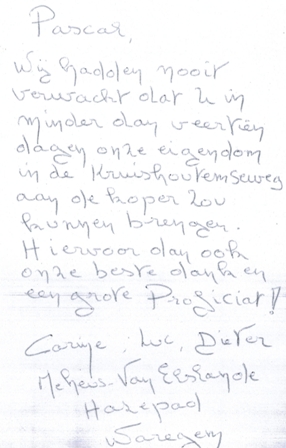 Pascal,
Wij hadden nooit
verwacht dat U in
minder dan veertien
dagen onze eigendom
in de Kruishoutemseweg
aan de koper zou
kunnen brengen.
Hiervoor dan ook
onze beste dank en
een grote Proficiat!
Carine, Luc, Dieter
Meheus-Van
Hazepad
Waregem